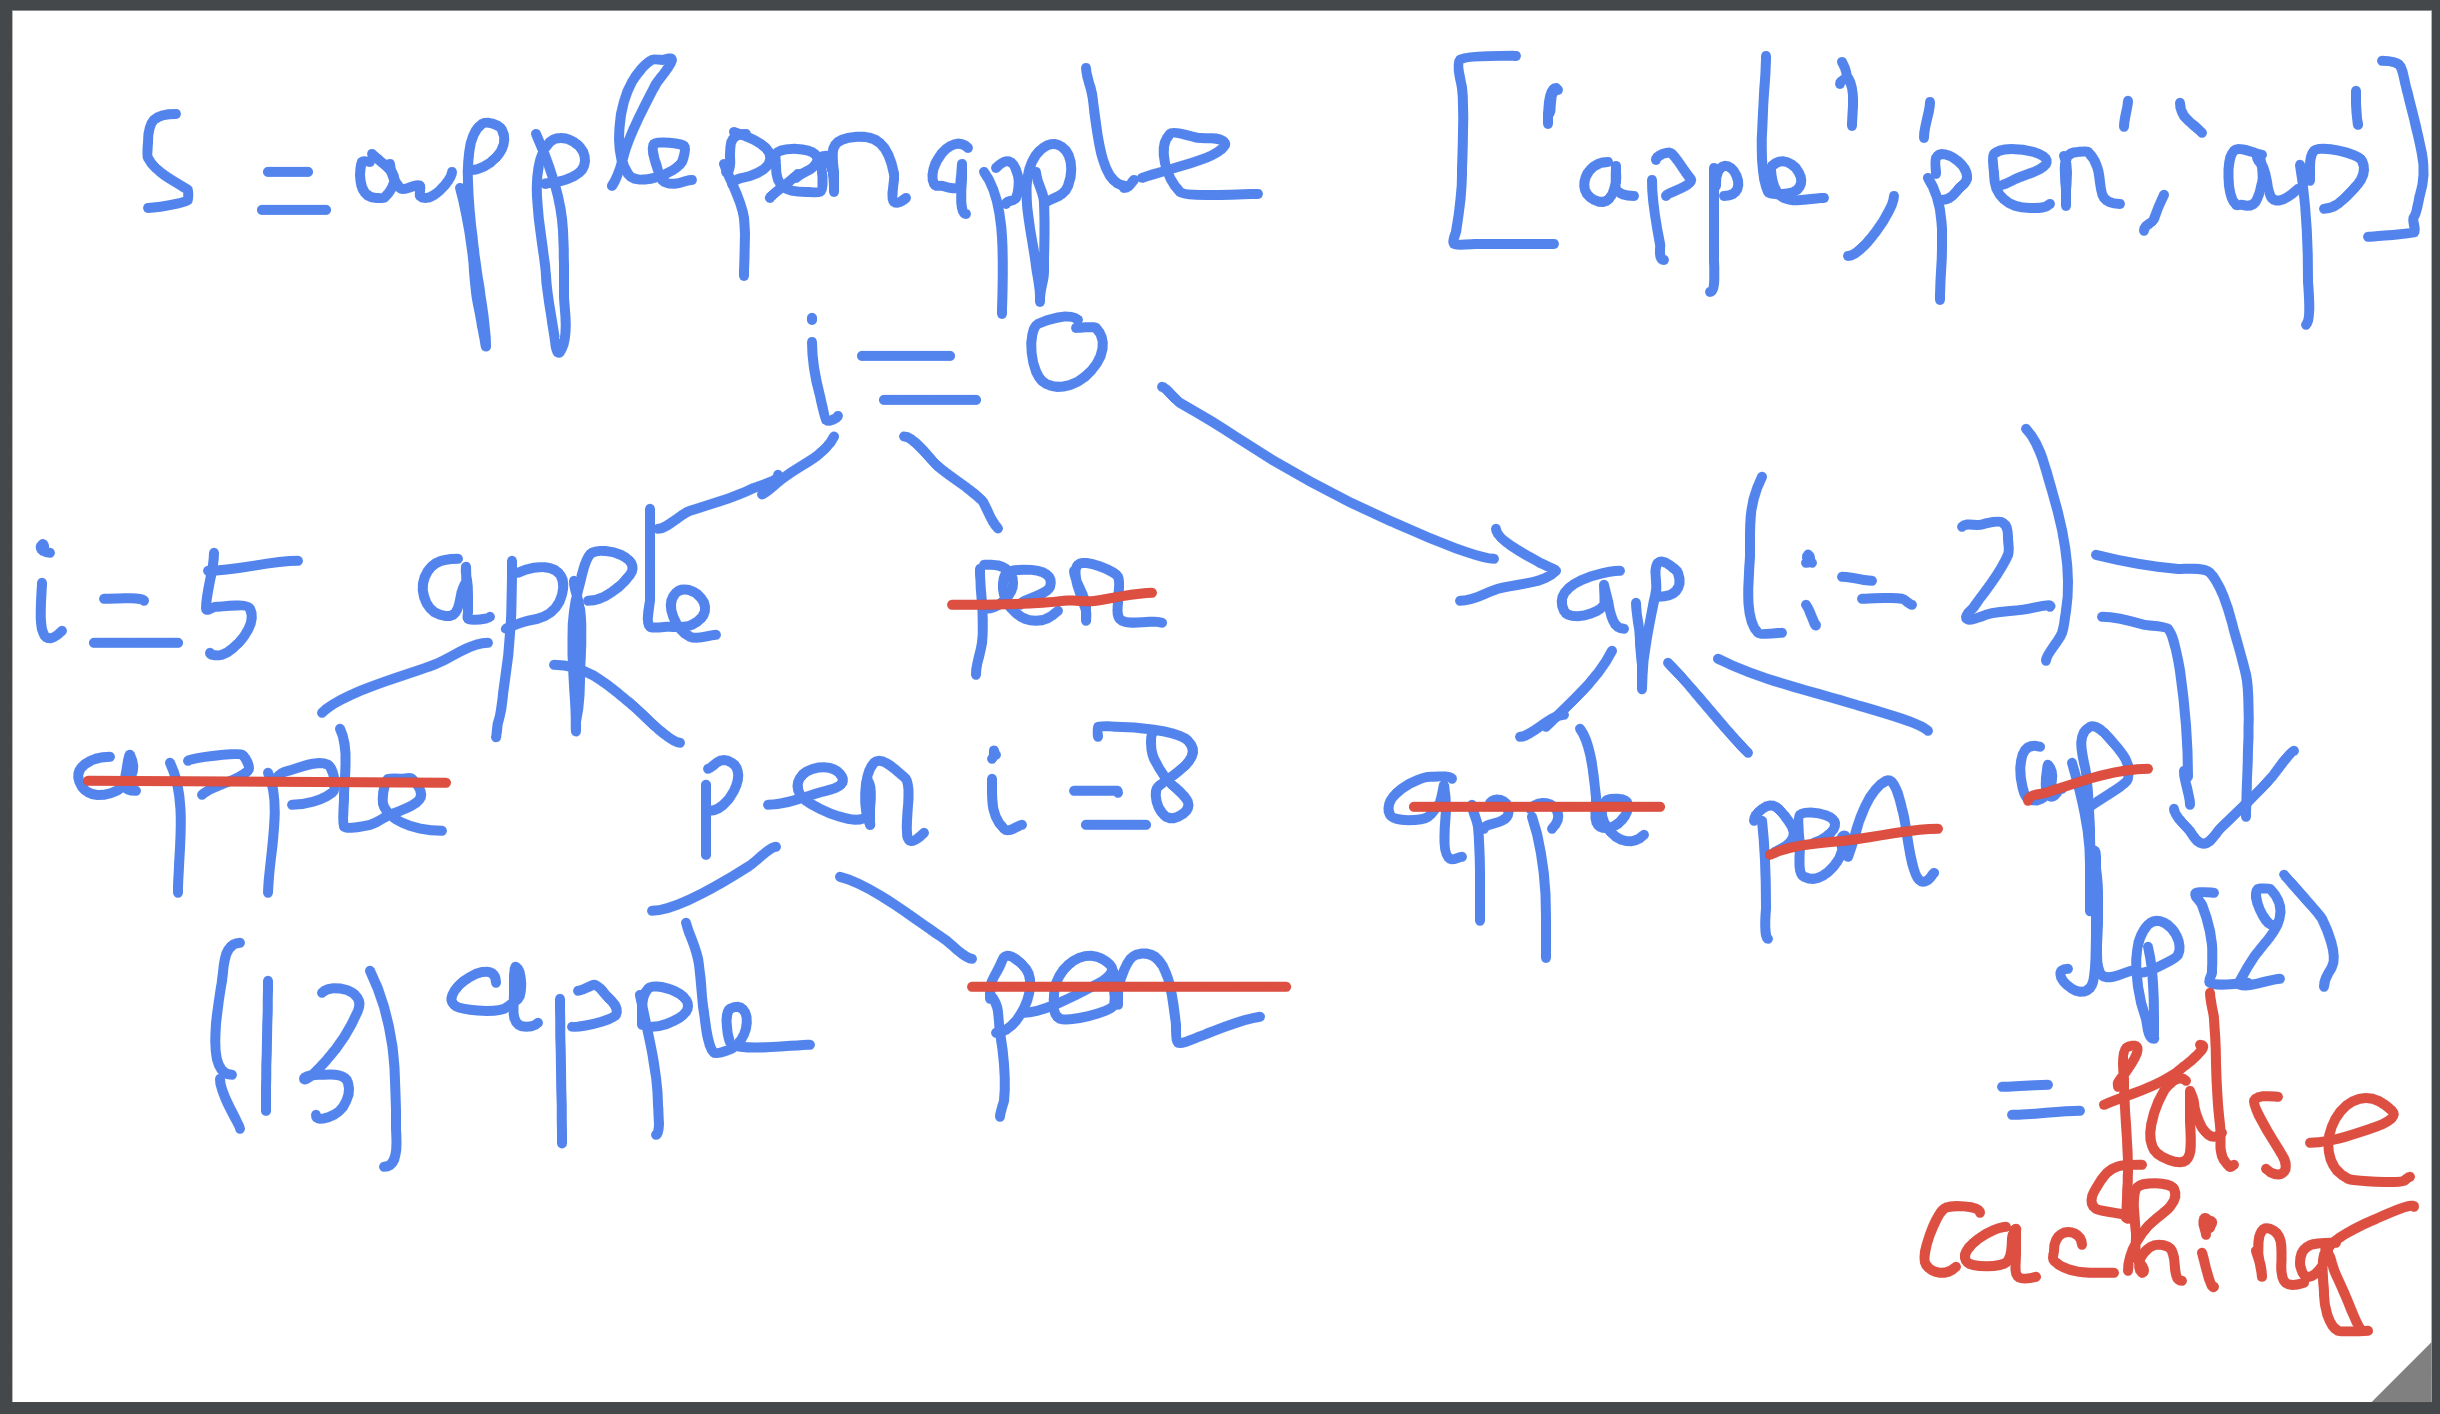 s = applepenapple ['apple', 'pen', 'ap']
i = 0
i = 5 apple pen ap (i = 2)
apple pen i = 8 appe pen ap
dp[2]
(13) apple pen
= false
caching